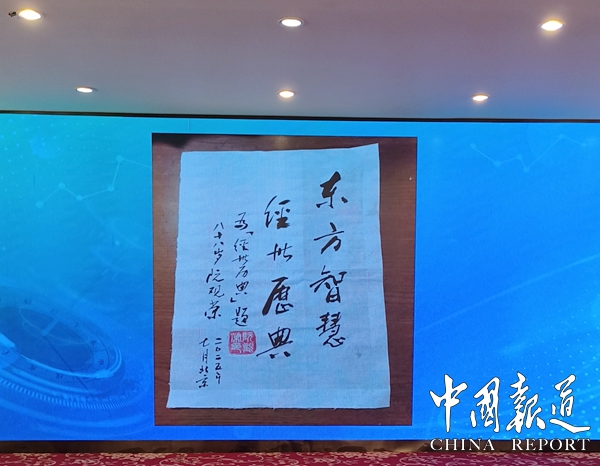 东方智慧
經世歷典
为「經世历典」题
八十八岁阮观荣
二〇二五年
七月北京
中國報道
CHINA REPORT